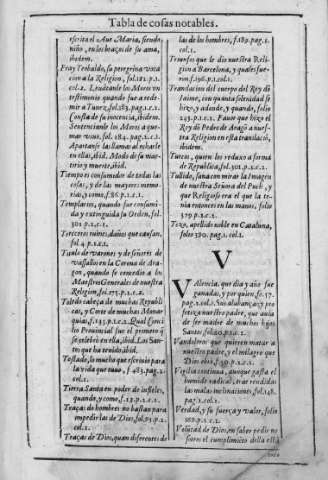 Tabla de cosas notables.
escrita el Aue Maria, siendo
niño, en los braços de su ama,
ibidem.
Fray Teobaldo, su peregrina vocacion
a la Religion, fol.181.p.1.
col.2. Leuãtanle los Moros vn
testimonio quando fue a redemir
a Tunez, fol.183. pag.1.
Consta de su inocencia, ibidem.
Sentencianle los Moros a quemar
viuo, fol. 184. pag.1.c.1.
Apartanse las llamas al echarle
en ellas, ibid. Modo de su martirio
y muerte, ibid.
Tiempo es consumidor de todas las
cosas, y de las mayores memorias,
y como, f.86.p.1.c.1.
Templarios, quando fue consumida
y extinguida su Orden, fol.
301 p.1.c.1.
Terceros ruines, daños que causan,
fol 4 p.1.c.1.
Titulo de varones y de señores de
vassallos en la Corona de Aragon,
quando se concedio a los
Maestros Generales de nuestra
Religion, fol.275.p.1.c.2.
Toledo cabeça de muchas Republicas,
y Corte de muchas Monarquias,
f.135.p.1.c.1. Qual Concilio
Prouincial fue el primero q̃
se celebrò en ella, ibid. Los Santos
que ha tenido, ibid.
Tostado, lo mucho que escriuio para
la vida que tuuo, f 483. pag.1.
col.1.
Tierra Santa en poder de infieles,
quando, y como, f.13.p.1.c.1.
Traças de hombres no bastan para
impedir las de Dios, fol.91.p.1.
col.1.
Traças de Dios, quan diferentes de
las de los hombres, f.189.pag.1.
col.1.
Triunfos que le dio nuestra Religion
a Barcelona, y quales fueron,
f.196.p.1.col.1.
Translacion del cuerpo del Rey dõ
Iaime, con quanta solenidad se
hizo, y adonde, y quando, folio
243.p.1.c.1. Fauor que hizo el
Rey dõ Pedro de Aragõ a nuestra
Religion en esta translaciõ,
ibidem.
Turcos, quien los reduxo a forma
de Republica, fol.301.p.1.c.1.
Tullido, sana con mirar la Imagẽ
de nuestra Señora del Puch, y
que Religioso era el que la tenia
entonces en las manos, folio
379 p.1.c.1.
Texo, apellido noble en Cataluña,
folio 380. pag. 1.col.1.
V
VAlencia, que dia y año fue
ganada, y por quien, fo. 57.
pag.1.col.1. Sus alabanças, y profetiza
nuestro padre, que auia
de ser madre de muchos hijos
Santos, fol.
Vandoleros que quieren matar a
nuestro padre, y el milagro que
Dios obrò, f.
Vigilia continua, aunque gasta el
humido radical, trae rendidas
las malas inclinaciones, fol.148.
pag.1.col.1.
Verdad, y su fuerça, y valor, folio
p.1.c.1.
Voluntad de Dios, en saber pedir no
sobre el cumplimiẽto della està